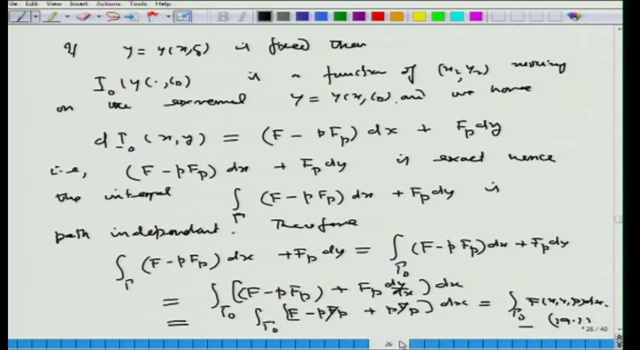 Edit View Insert Actions Tools Help
If y = y(x,c) is fixed then
I_0(y(·,c_0) is a function of (x_2,y_2) moving
on the extremal y = y(x,c_0) and we have
d I_0(x,y) = (F - pF_p) dx + F_p dy
i.e, (F - pF_p) dx + F_p dy is exact hence
the integral ∫_Γ (F - pF_p) dx + F_p dy is
path independent. Therefore
∫_Γ (F - pF_p) dx + F_p dy = ∫_{Γ_0} (F - pF_p) dx + F_p dy
= ∫_{Γ_0} [(F - pF_p) + F_p dy/dx] dx
= ∫_{Γ_0} [F - pF_p + pF_p] dx = ∫_{Γ_0} F(x,y,p) dx.
(19.1)
26
26 / 40